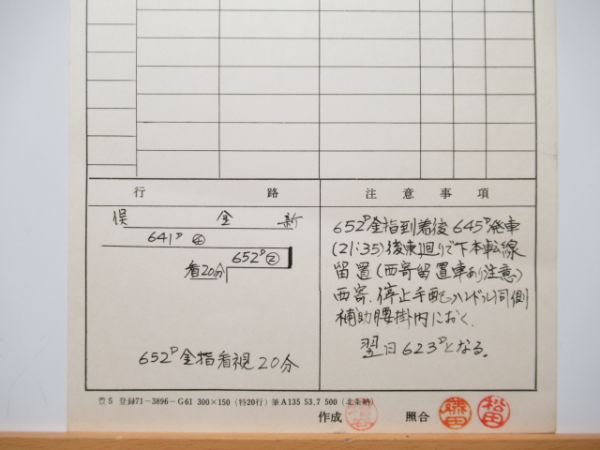 行路
俣 金 新
641D ②
652D ②
看20分
652D金指看視20分
注意事項
652D金指到着後645D発車
(21:35)後東廻りで下本転線
留置(西寄留置車あり注意)
西寄、停止手配、ハンドル同側
補助腰掛内におく、
翌日623Dとなる。
豊S 登録71-3896-G61 300×150 (特20行) 筆A135 53.7 500 (北条納)
作成 照合